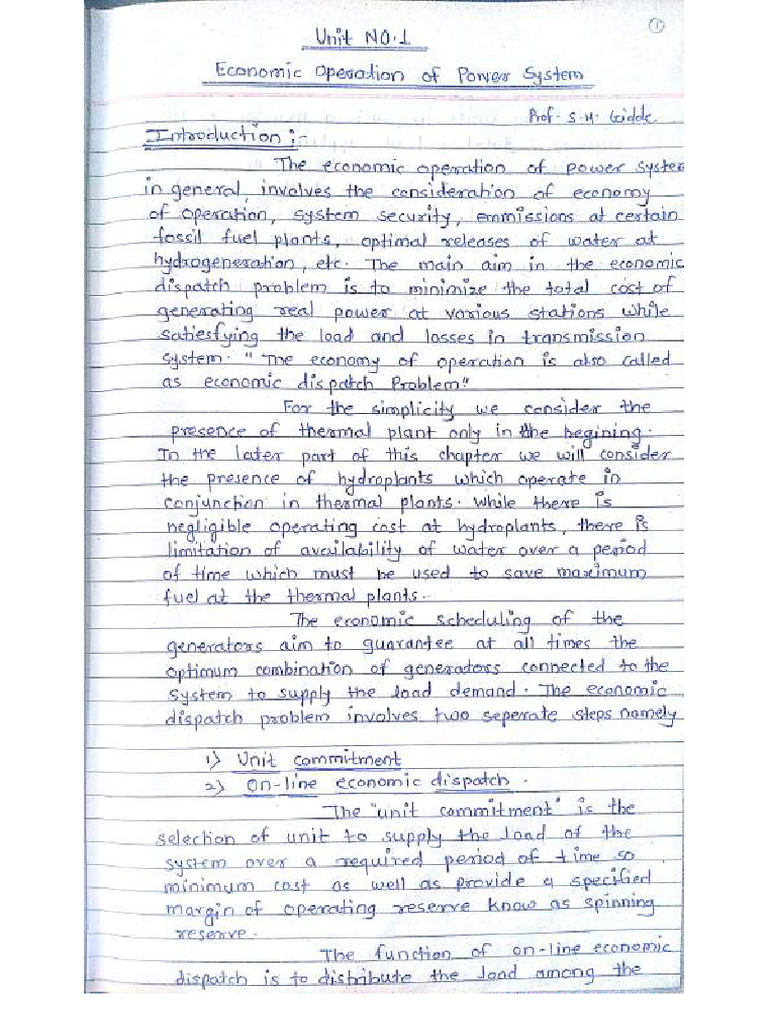 1
Unit No.1
Economic Operation of Power System
Prof. S.M.
Introduction :-
The economic operation of power system
in general, involves the consideration of economy
of operation, system security, emmissions at certain
fossil fuel plants, optimal releases of water at
hydrogeneration, etc. The main aim in the economic
dispatch problem is to minimize the total cost of
generating real power at various stations while
satiesfying the load and losses in transmission
system. "The economy of operation is also called
as economic dispatch Problem"
For the simplicity we consider the
presence of thermal plant only in the begining.
In the later part of this chapter we will consider
the presence of hydroplants which operate in
conjunction in thermal plants. While there is
negligible operating cost at hydroplants, there is
limitation of availability of water over a period
of time which must be used to save maximum
fuel at the thermal plants.
The economic scheduling of the
generators aim to guarantee at all times the
optimum combination of generators connected to the
system to supply the load demand. The economic
dispatch problem involves two seperate steps namely
1) Unit commitment
2) On-line economic dispatch.
The "unit commitment" is the
selection of unit to supply the load of the
system over a required period of time so
minimum cost as well as provide a specified
margin of operating reserve know as spinning
reserve.
The function of on-line economic
dispatch is to distribute the load among the